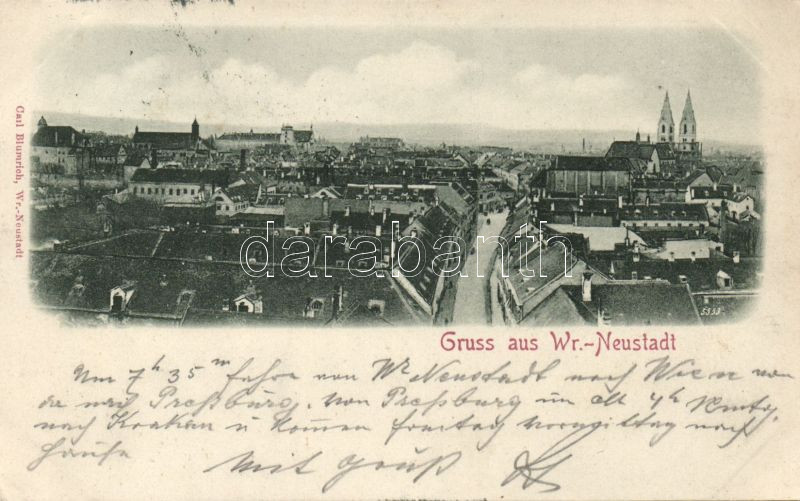 Carl Blumrich, Wr.-Neustadt
darabanth
5333
Gruss aus Wr.-Neustadt
Um 7h 35m fahre von Wr Neustadt nach Wien von
da nach Preßburg. Von Preßburg um 4h
nach Krakau u kommen freitag vormittag nach
hause
Mit Gruß